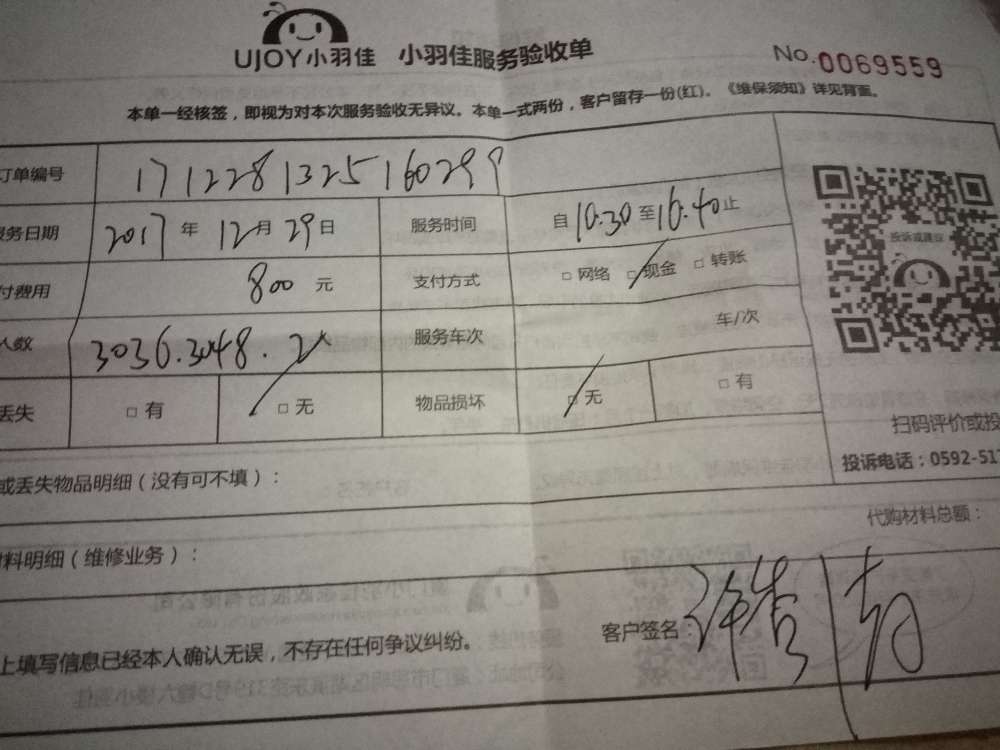 UJOY小羽佳 小羽佳服务验收单 No.0069559
本单一经核签，即视为对本次服务验收无异议。本单一式两份，客户留存一份(红)。《维保须知》详见背面。
订单编号 1712281325160299
务日期 2017 年 12月 29日 服务时间 自 10.30 至 16.40 止
付费用 800 元 支付方式 □ 网络 □ 现金 □ 转账
人数 3036.3048. 2人 服务车次 车/次
丢失 □ 有 □ 无 物品损坏 □ 无 □ 有
投诉或建议
扫码评价或投
投诉电话：0592-517
或丢失物品明细（没有可不填）：
代购材料总额：
料明细（维修业务）：
上填写信息已经本人确认无误，不存在任何争议纠纷。 客户签名：